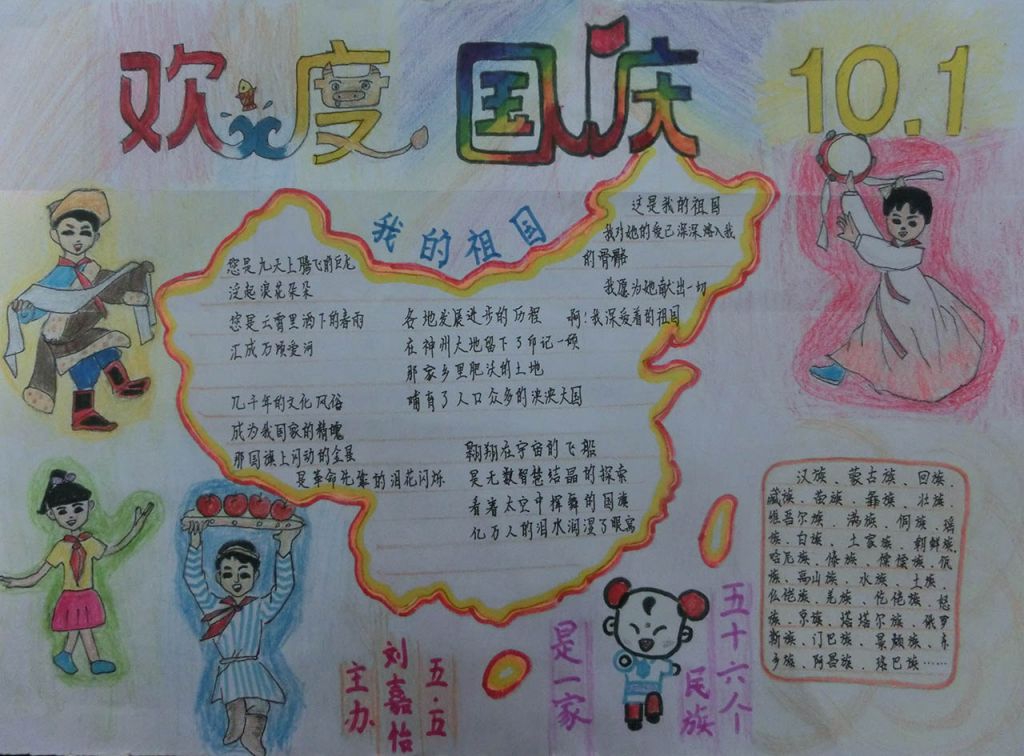 欢度国庆
10.1
我的祖国
您是九天上腾飞的巨龙
泛起浪花朵朵
您是云霄里洒下的春雨
汇成万顷爱河
几千年的文化风俗
成为我国家的精魂
那国旗上闪动的金晨
是革命先辈的泪花闪烁
各地发展进步的历程
在神州大地留下了印记一顿
那家乡里肥沃的土地
哺育了人口众多的泱泱大国
翱翔在宇宙的飞船
是无数智慧结晶的探索
看着太空中挥舞的国旗
亿万人的泪水润湿了眼窝
这是我的祖国
我对她的爱已深深溶入我
的骨髓
我愿为她献出一切
啊！我深爱着的祖国
汉族、蒙古族、回族、
藏族、苗族、彝族、壮族、
维吾尔族、满族、侗族、瑶
族、白族、土家族、朝鲜族、
哈尼族、傣族、傈僳族、佤
族、高山族、水族、土族、
仫佬族、羌族、仡佬族、怒
族、京族、塔塔尔族、俄罗
斯族、门巴族、景颇族、东
乡族、阿昌族、珞巴族……
五十六个
民族
是一家
五.五
刘嘉怡
主办